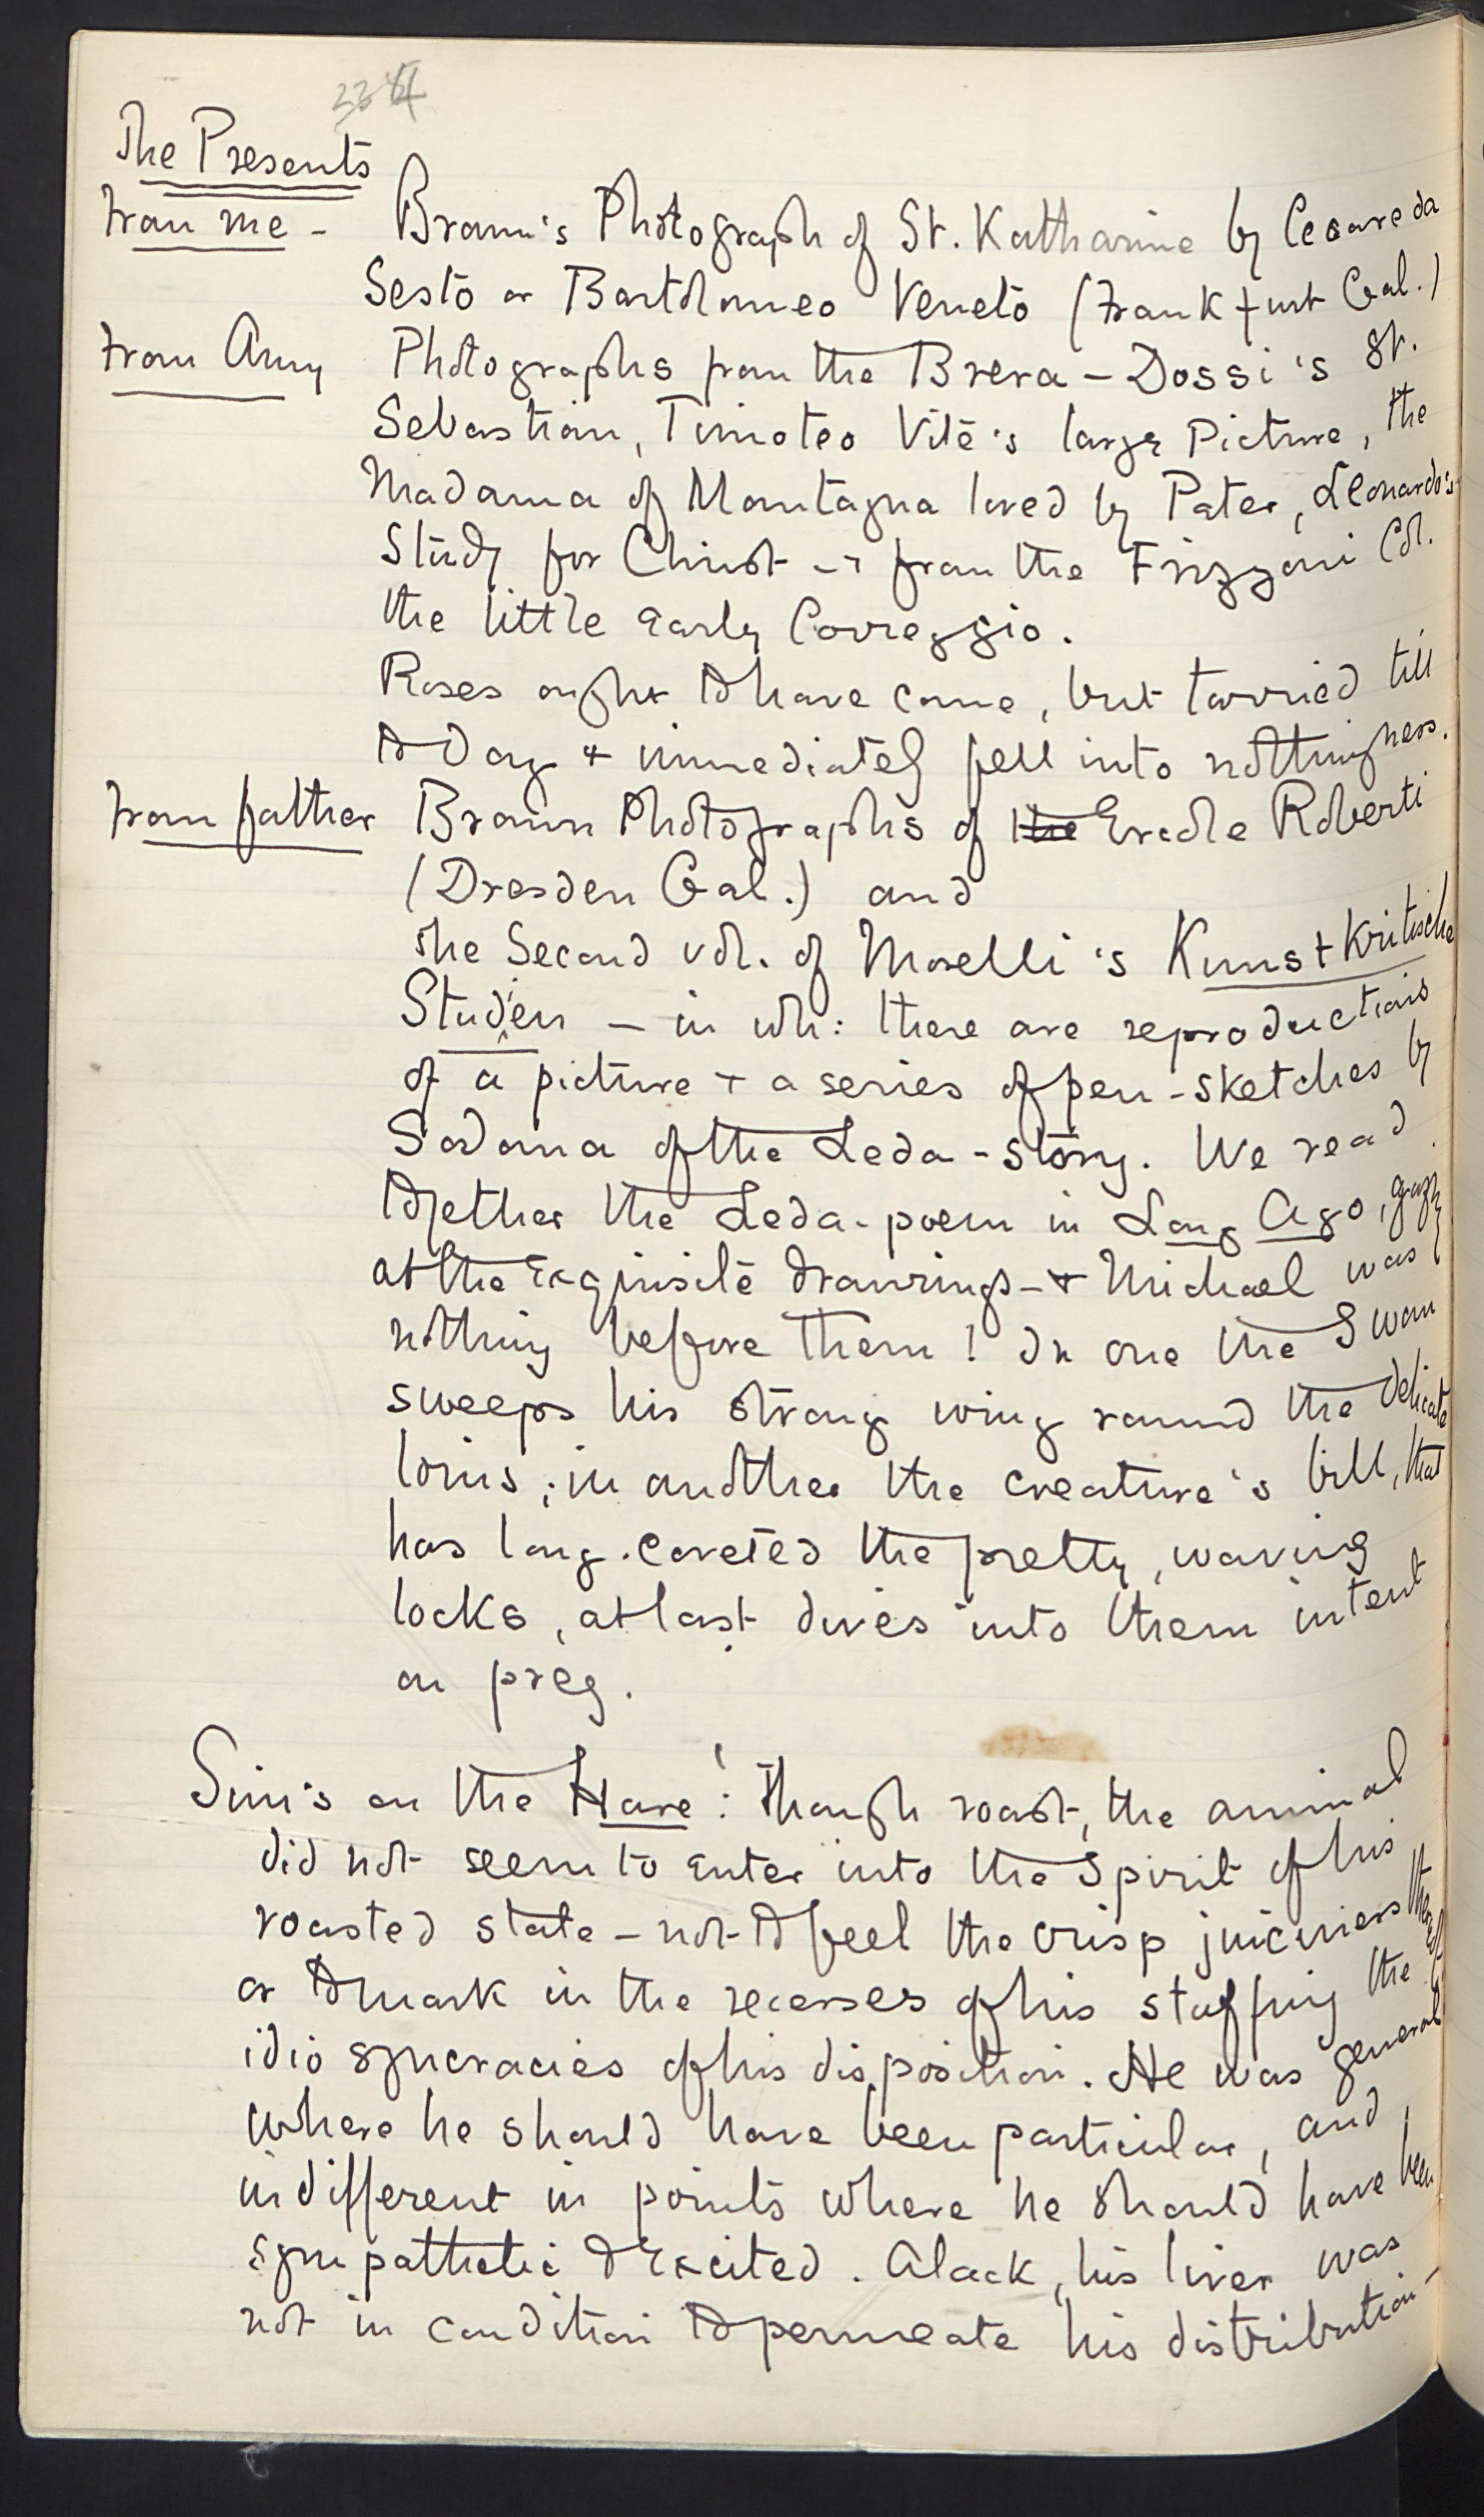 The Presents
From me - Braun's Photograph of St. Katharine by Cesare da
Sesto or Bartolomeo Veneto (Frankfurt Gal.)
From Amy Photographs from the Brera - Dossi's St.
Sebastian, Timoteo Vite's large Picture, the
Madonna of Montagna loved by Pater, Leonardo's
Study for Christ - & from the Frizzoni Col.
the little early Correggio.
Roses ought to have come, but tarried till
to day & immediately fell into nothingness.
From father Braun Photographs of the Ercole Roberti
(Dresden Gal.) and
The Second vol. of Morelli's Kunstkritische
Studien - in wh: there are reproductions
of a picture & a series of pen-sketches by
Sodoma of the Leda-story. We read
together the Leda-poem in Long Ago,
at the exquisite drawings - & Michael was
nothing before them! In one the Swan
sweeps his strong wing round the delicate
loins; in another the creature's bill, that
has long coveted the pretty, waving
locks, at last dives into them intent
on prey.
Sim's on the Hare! : Though roast, the animal
did not seem to enter into the Spirit of his
roasted state - not to feel the crisp juiciness thereof
or to mark in the recesses of his stuffing the
idiosyncracies of his disposition. He was general
where he should have been particular, and
indifferent in points where he should have been
sympathetic & excited. Alack, his liver was
not in condition to permeate his distribution -